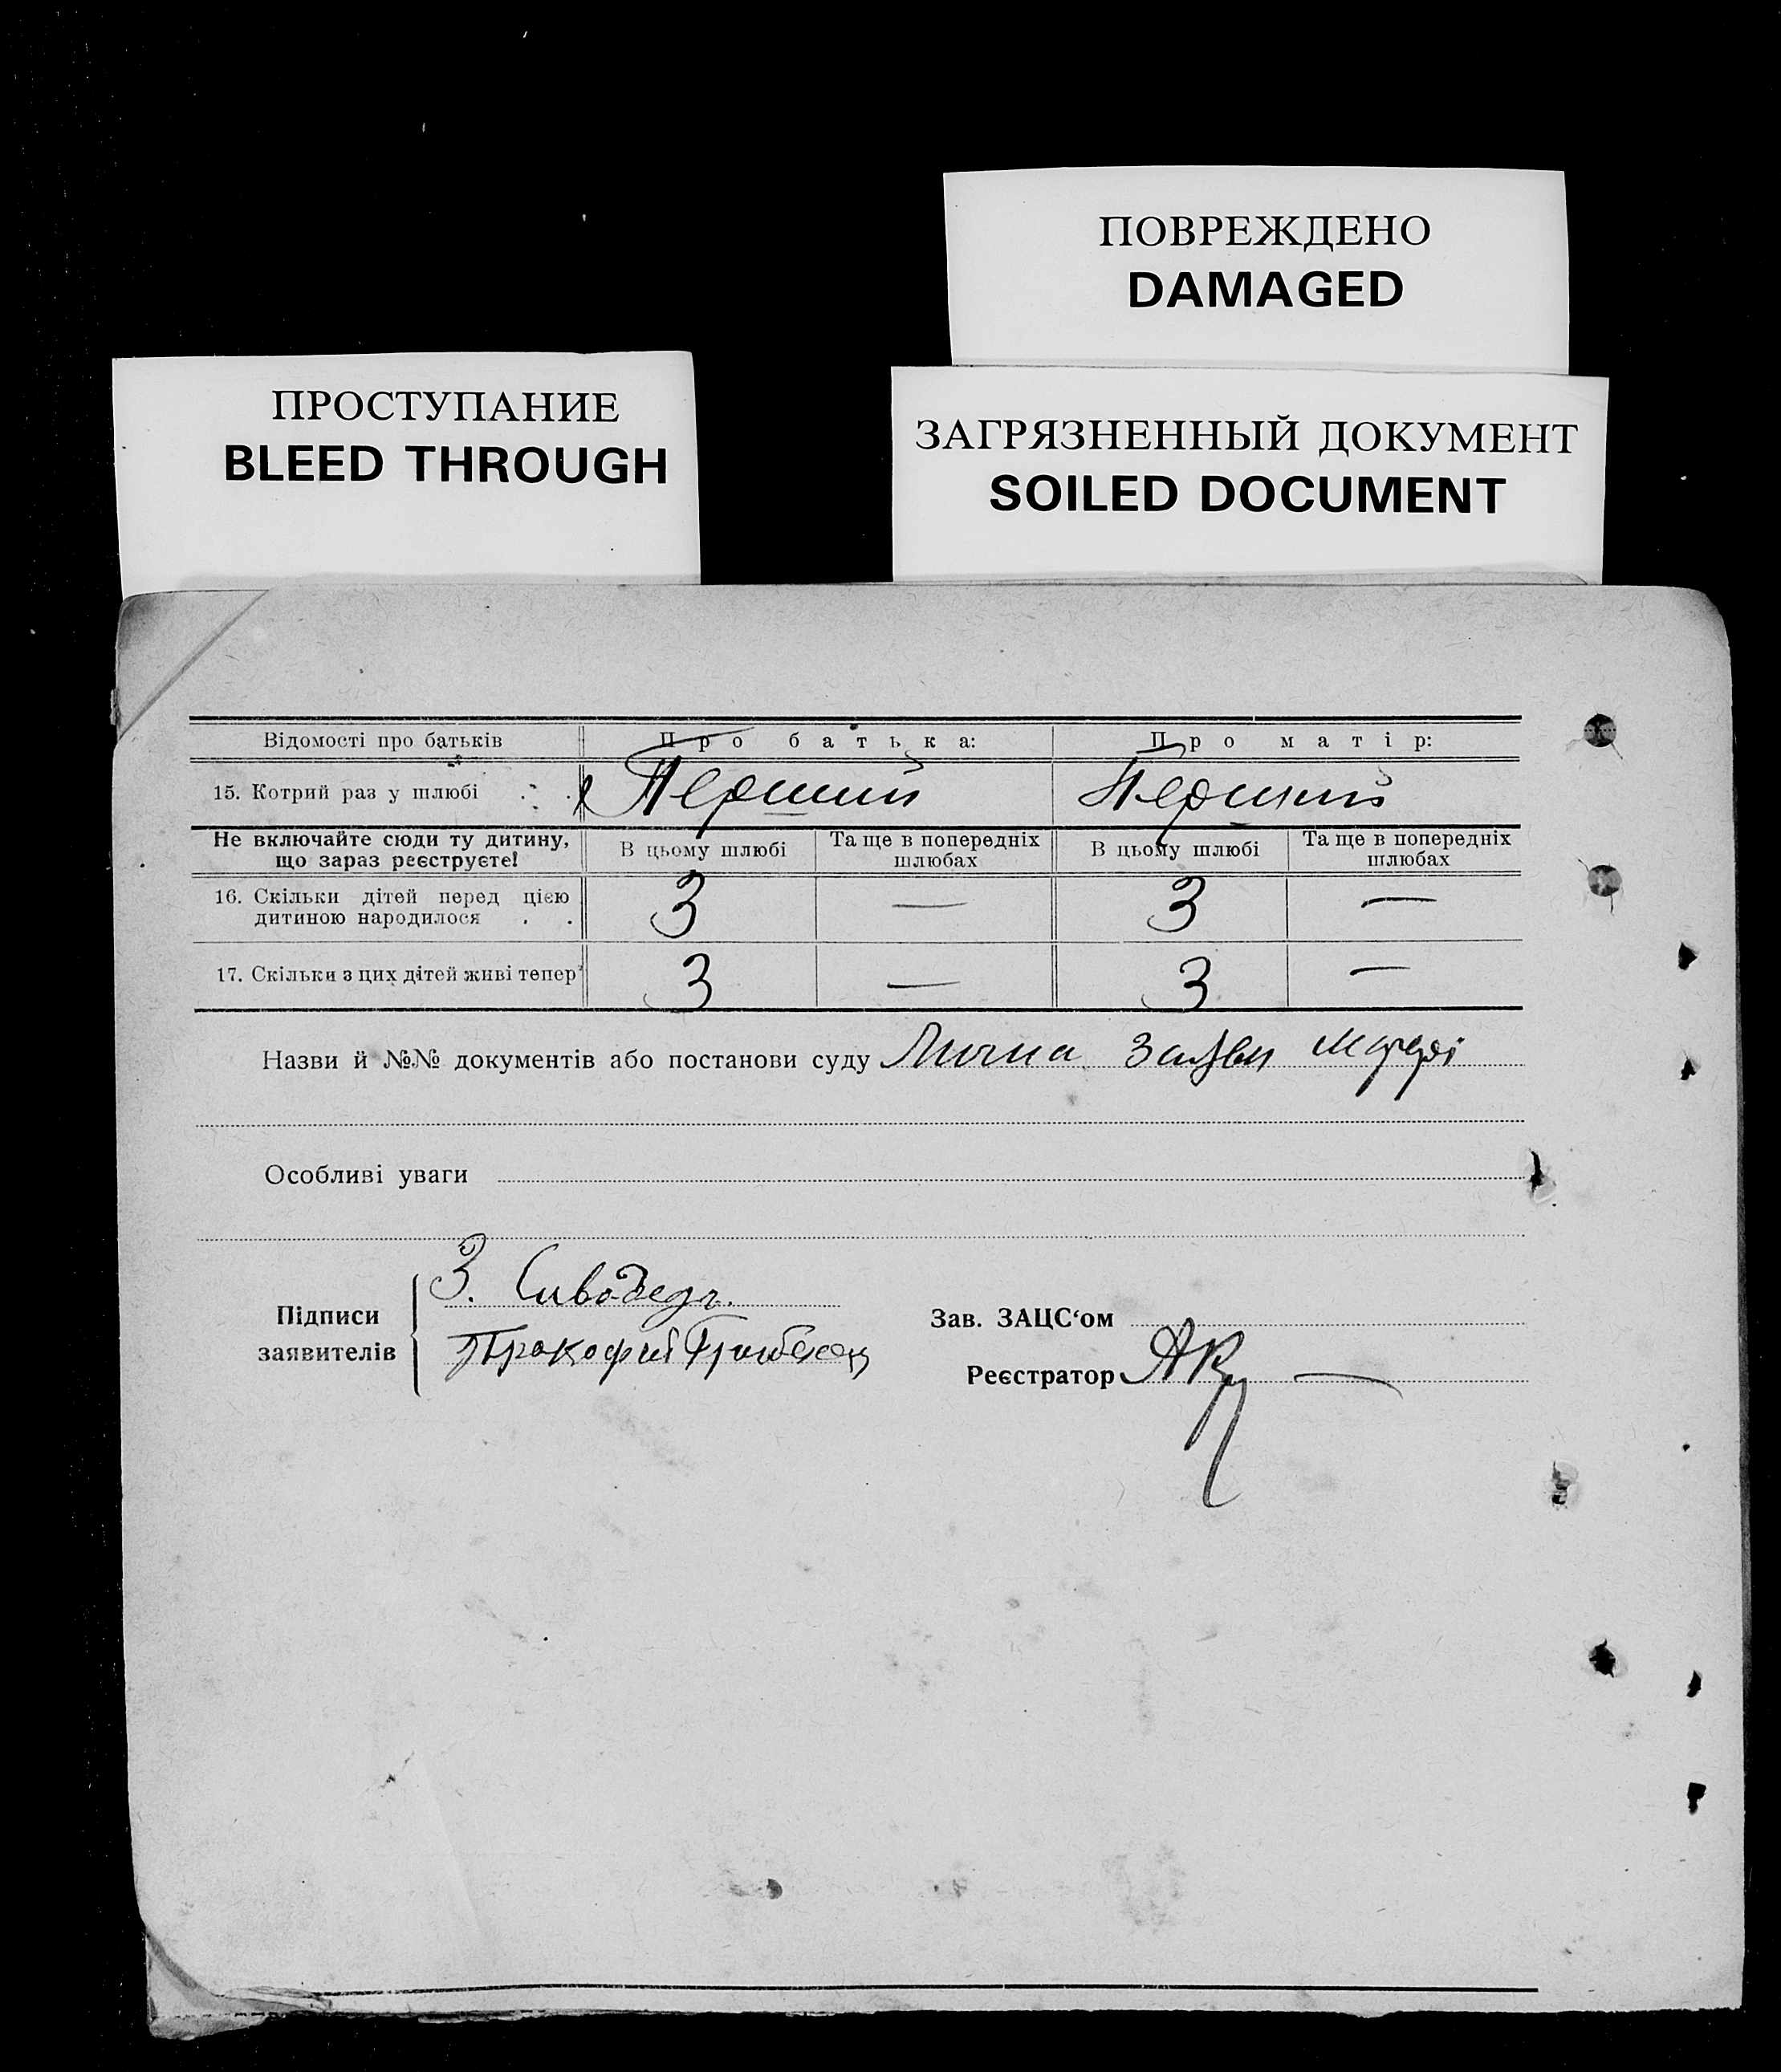 ПОВРЕЖДЕНО
DAMAGED
ПРОСТУПАНИЕ
BLEED THROUGH
ЗАГРЯЗНЕННЫЙ ДОКУМЕНТ
SOILED DOCUMENT
Відомості про батьків Про батька: Про матір:
15. Котрий раз у шлюбі . . Перший Перший
Не включайте сюди ту дитину, що зараз реєструєте! В цьому шлюбі Та ще в попередніх шлюбах В цьому шлюбі Та ще в попередніх шлюбах
16. Скільки дітей перед цією
дитиною народилося . . 3 — 3 —
17. Скільки з цих дітей живі тепер 3 — 3 —
Назви й №№ документів або постанови суду Лична заява матері
Особливі уваги
Підписи
заявителів
З.
Прокофий
Зав. ЗАЦС‘ом
Реєстратор